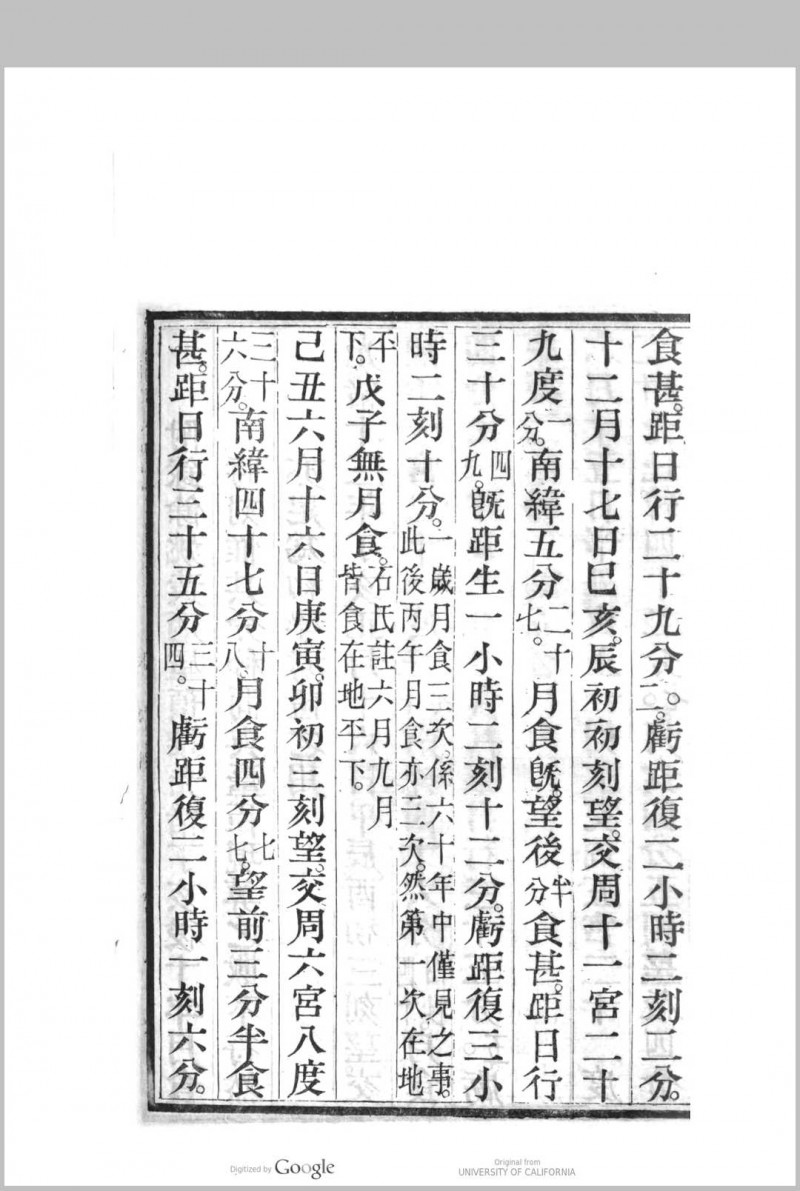 食甚。距日行二十九分二。虧距復二小時二刻二分。
十二月十七日巳亥。辰初初刻望。交周十一宮二十
九度一分。南緯五分二十七。月食旣。望後半分食甚。距日行
三十分四九。旣距生一小時二刻十二分。虧距復三小
時二刻十分。一歲月食三次。係六十年中僅見之事。此後丙午月食亦三次。然第一次在地
平下。戊子無月食。石氏註六月九月皆食在地平下。
己丑六月十六日庚寅。卯初三刻望。交周六宮八度
三十六分。南緯四十七分十八。月食四分七七。望前三分半食
甚。距日行三十五分三十四。虧距復二小時一刻六分。
Digitized by Google
Original from
UNIVERSITY OF CALIFORNIA